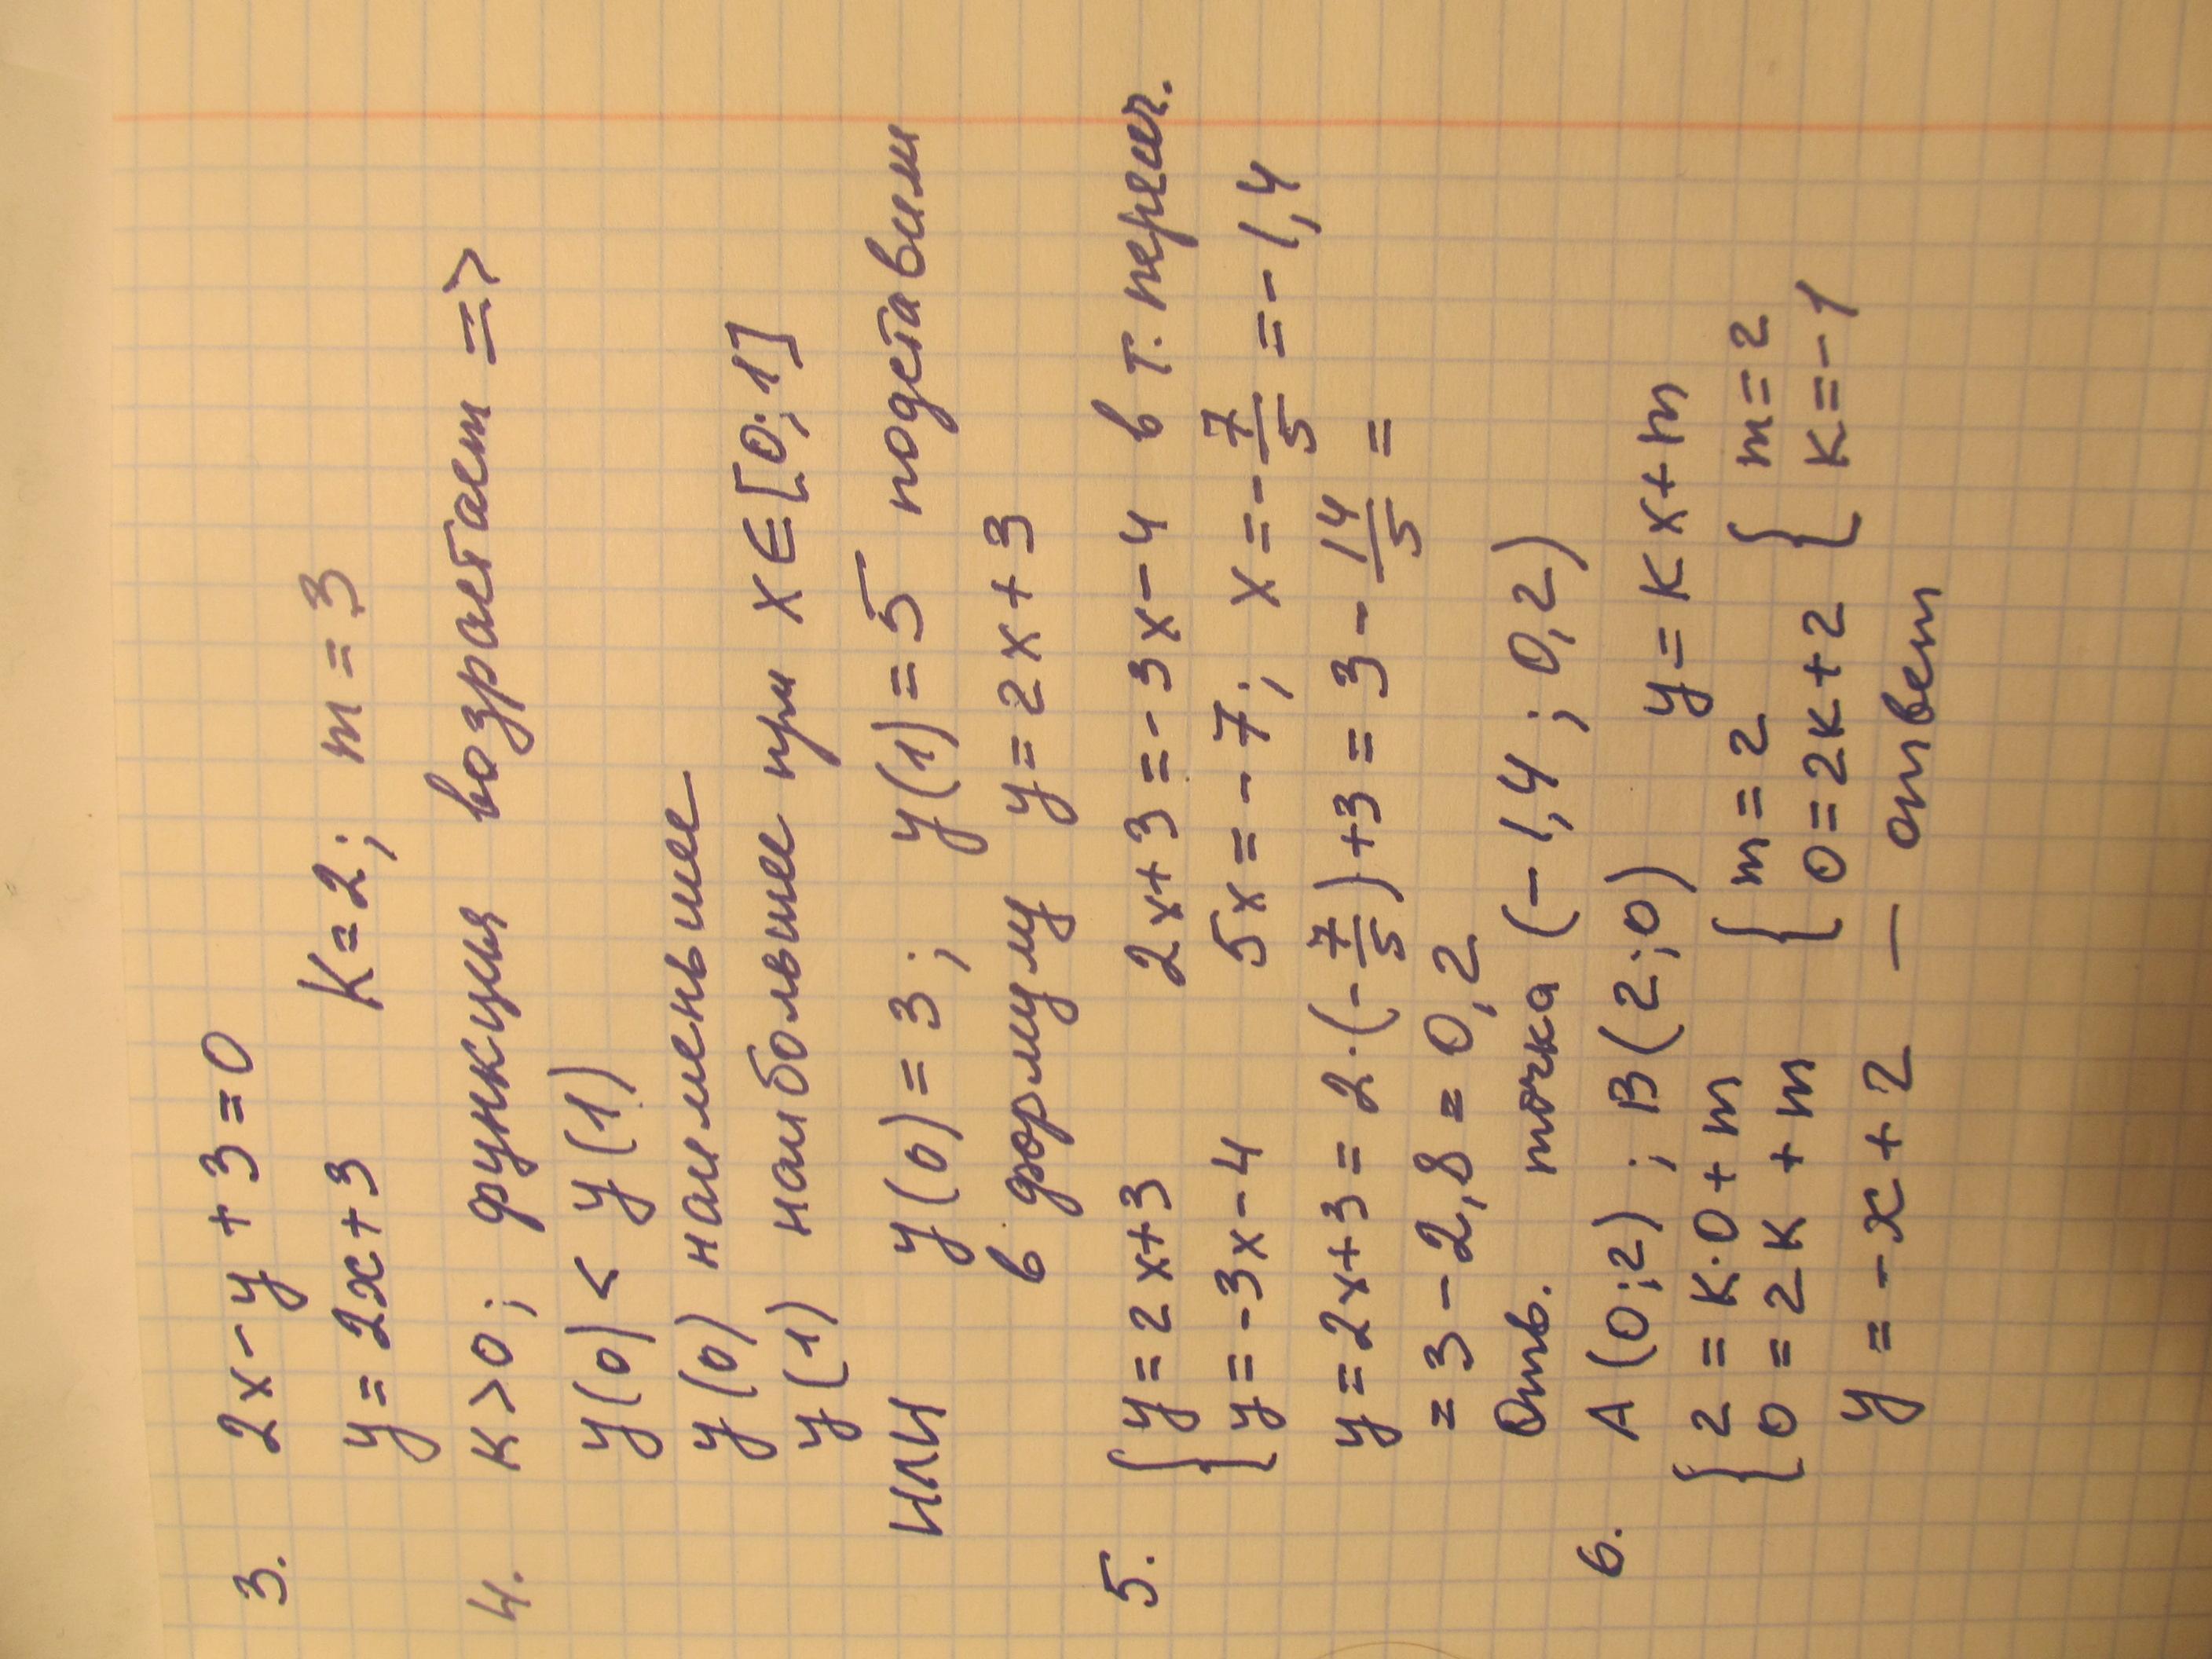 3. 2x - y + 3 = 0
y = 2x + 3   K = 2; m = 3
4. K > 0; функция возрастает =>
y(0) < y(1)
y(0) наименьшее
y(1) наибольшее при x ∈ [0; 1]
или y(0) = 3; y(1) = 5 подставим
в формулу y = 2x + 3
5. { y = 2x + 3   2x + 3 = -3x - 4 в т. пересеч.
{ y = -3x - 4   5x = -7; x = -7/5 = -1,4
y = 2x + 3 = 2·(-7/5) + 3 = 3 - 14/5 =
= 3 - 2,8 = 0,2
Отв. точка (-1,4; 0,2)
6. A(0; 2); B(2; 0)   y = Kx + m
{ 2 = K·0 + m   { m = 2   { m = 2
{ 0 = 2K + m   { 0 = 2K + 2   { K = -1
y = -x + 2 — ответ